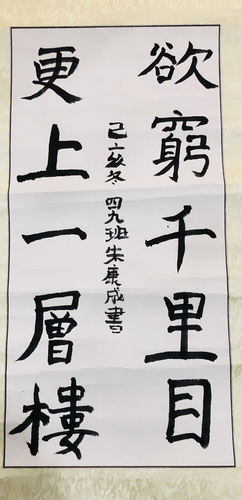 欲窮千里目
更上一層樓
己亥冬 四九班朱康成書